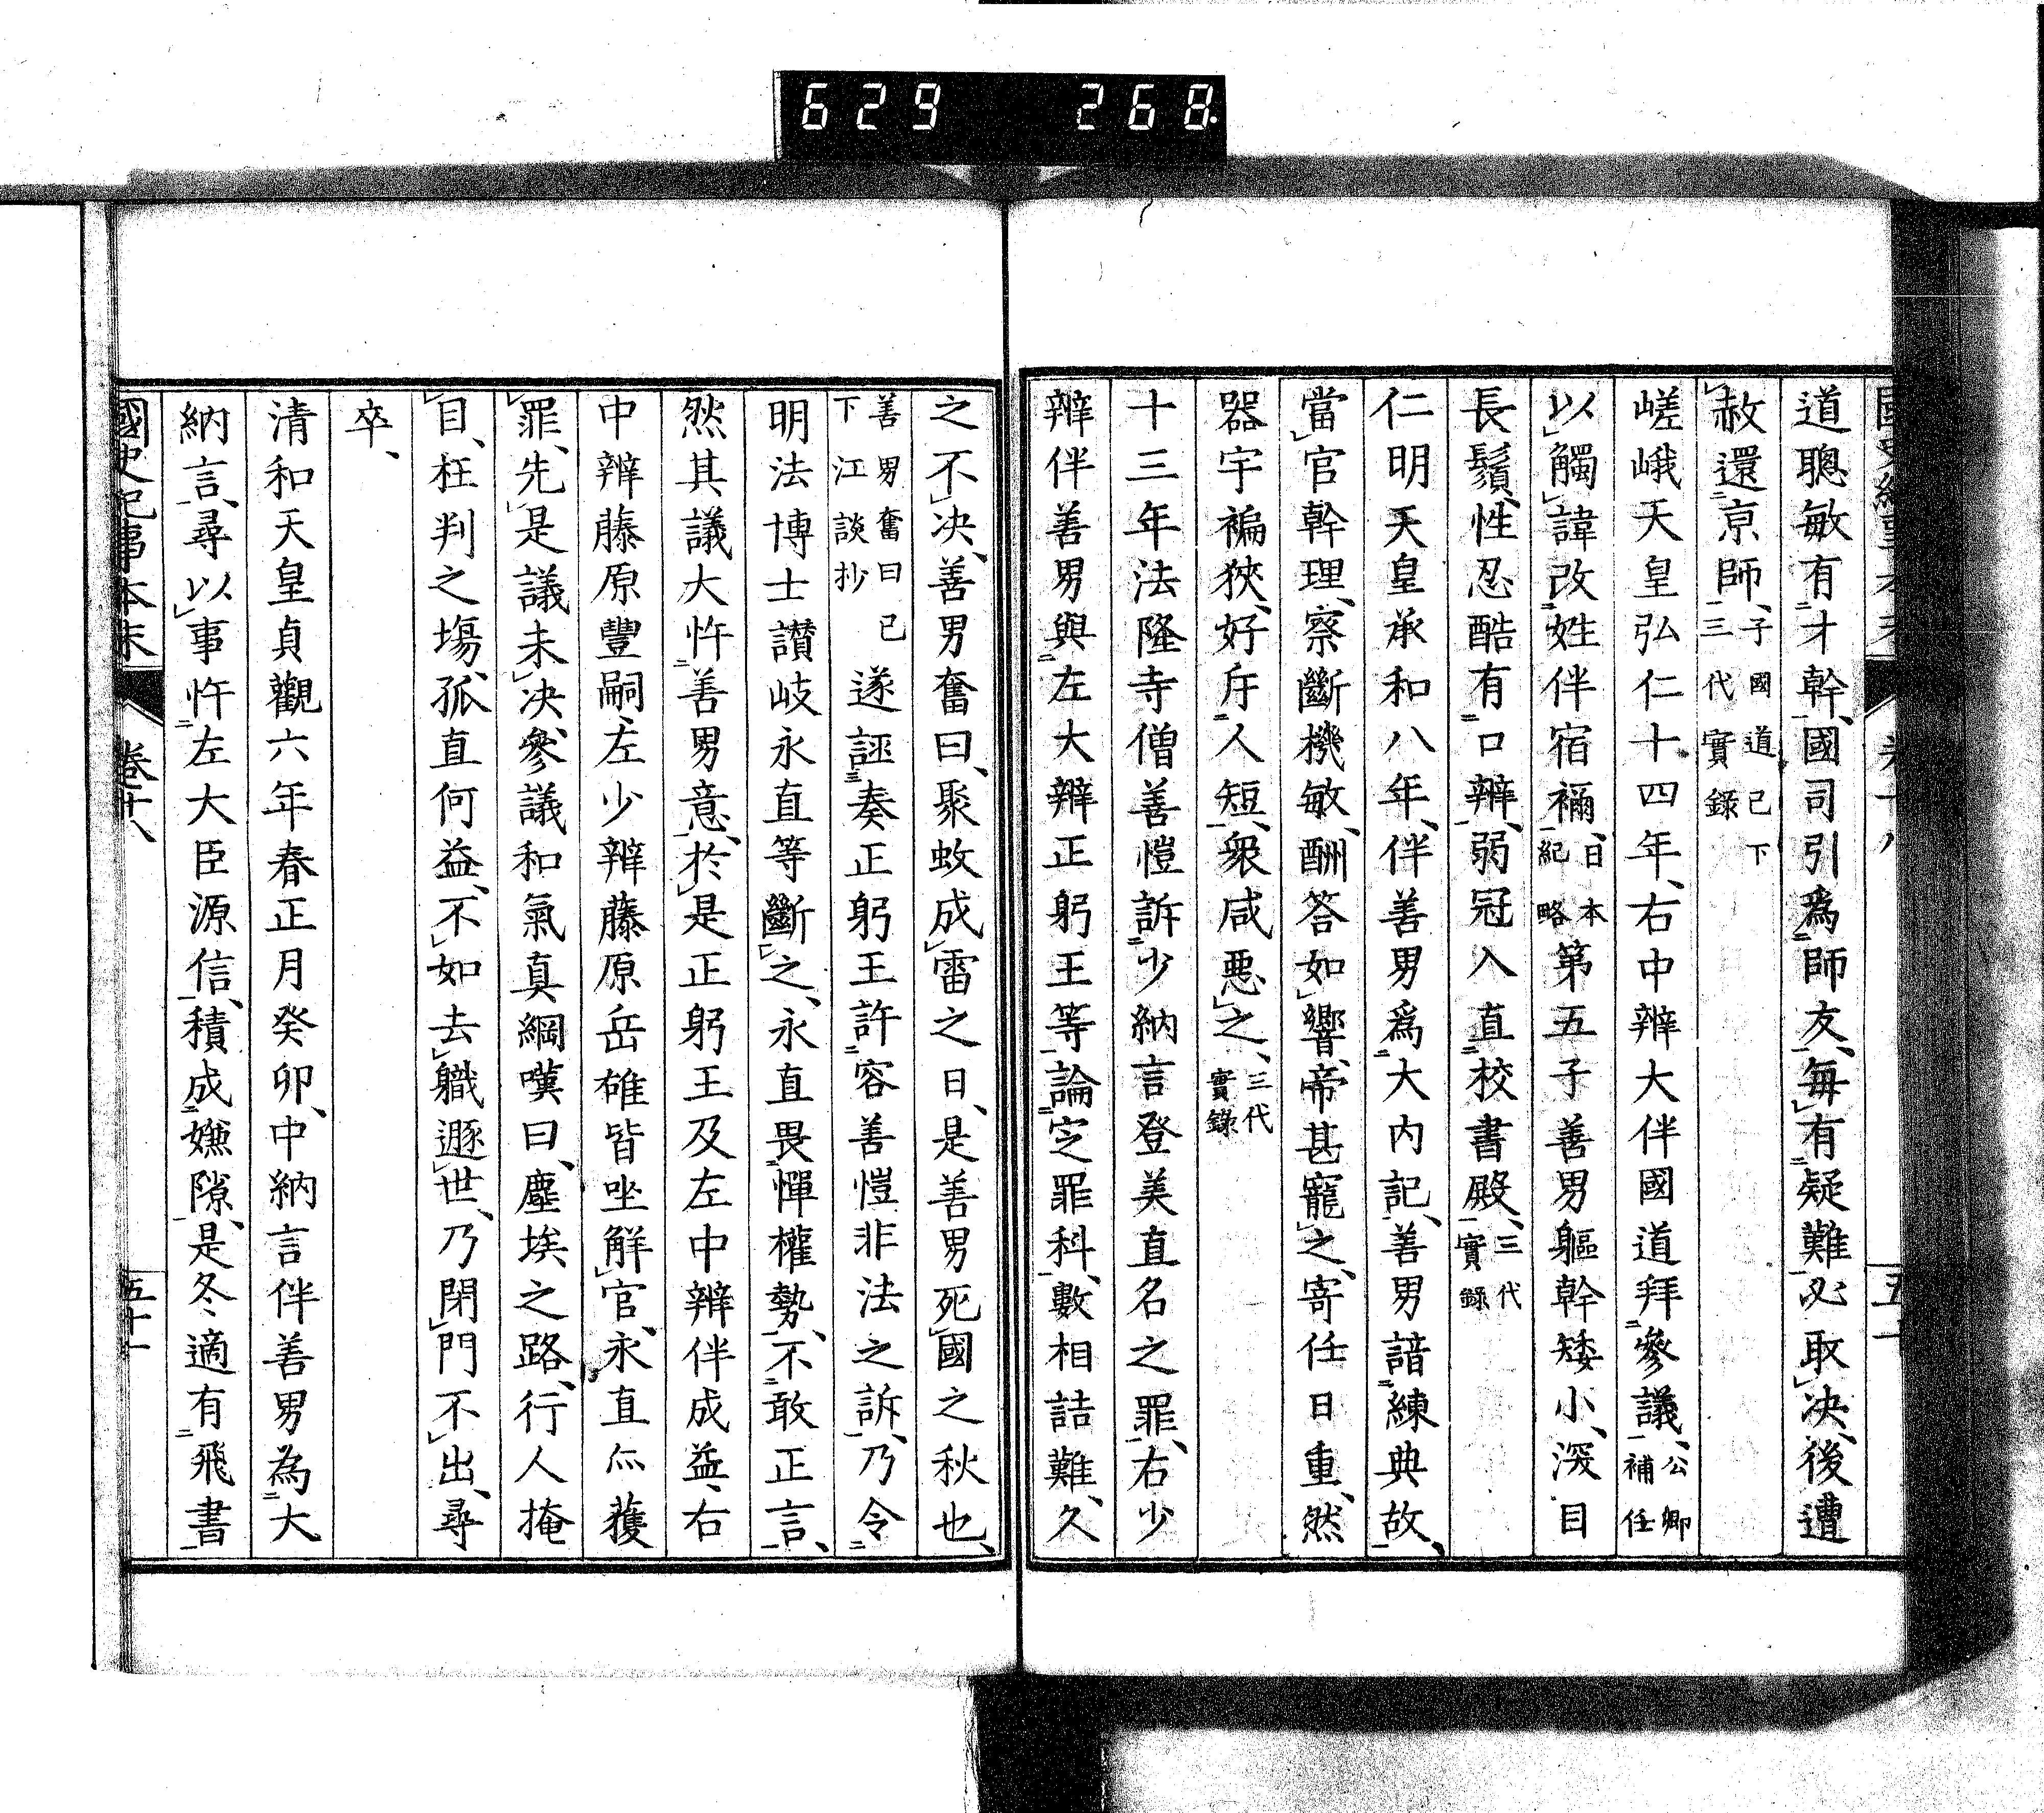 629 268
道聰敏有才幹、國司引爲師友、每有疑難必取決、後遭
赦還京師、子國道已下三代實錄
嵯峨天皇弘仁十四年、右中辨大伴國道拜參議、公卿補任
以觸諱改姓伴宿禰、日本紀略第五子善男軀幹矮小、深目
長鬚、性忍酷有口辨、弱冠入直校書殿、三代實錄
仁明天皇承和八年、伴善男爲大內記、善男諳練典故、
當官幹理、察斷機敏、酬答如響、帝甚寵之、寄任日重、然
器宇褊狹、好斥人短、衆咸惡之、三代實錄
十三年法隆寺僧善愷訴少納言登美直名之罪、右少
辨伴善男與左大辨正躬王等論定罪科、數相詰難、久
之不決、善男奮曰、聚蚊成雷之日、是善男死國之秋也、
善男奮曰已下江談抄遂誣奏正躬王許容善愷非法之訴、乃令
明法博士讃岐永直等斷之、永直畏憚權勢、不敢正言、
然其議大忤善男意、於是正躬王及左中辨伴成益、右
中辨藤原豐嗣、左少辨藤原岳雄皆坐解官、永直亦獲
罪、先是議未決、參議和氣真綱嘆曰、塵埃之路、行人掩
目、枉判之場、孤直何益、不如去職遯世、乃閉門不出、尋
卒、
清和天皇貞觀六年春正月癸卯、中納言伴善男為大
納言、尋以事忤左大臣源信、積成嫌隙、是冬、適有飛書
國史紀事本末 卷十八 五十一